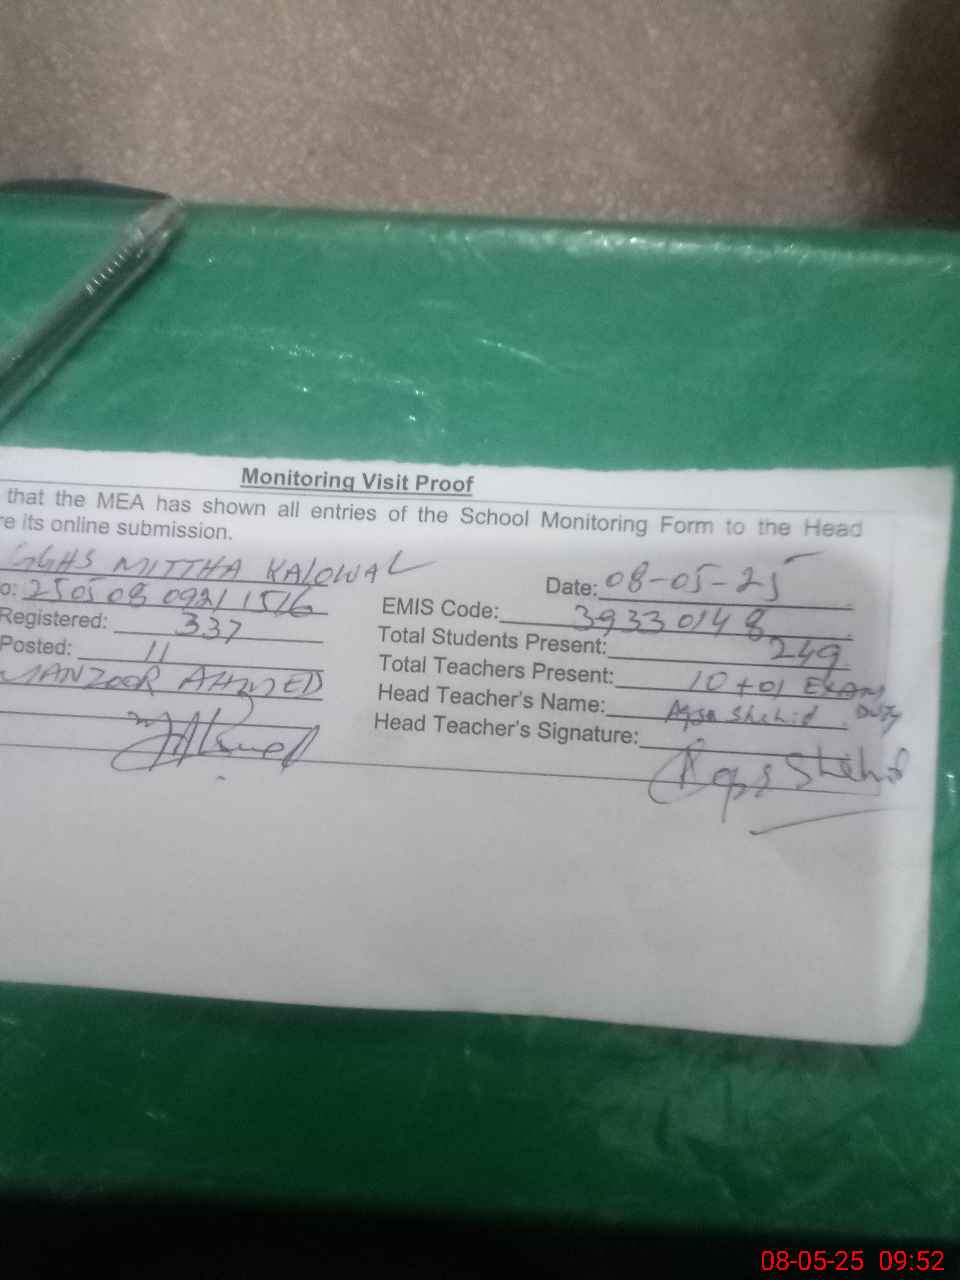 Monitoring Visit Proof
that the MEA has shown all entries of the School Monitoring Form to the Head
re its online submission.
GGHS MITTHA KALOWAL
Date: 08-05-25
o: 25050809211516
EMIS Code: 39330148
Registered: 337
Total Students Present: 249
Posted: 11
Total Teachers Present: 10+01 EXAM DUTY
MANZOOR AHMED
Head Teacher's Name: Aqsa Shahid
Head Teacher's Signature: Aqsa Shahid
08-05-25 09:52